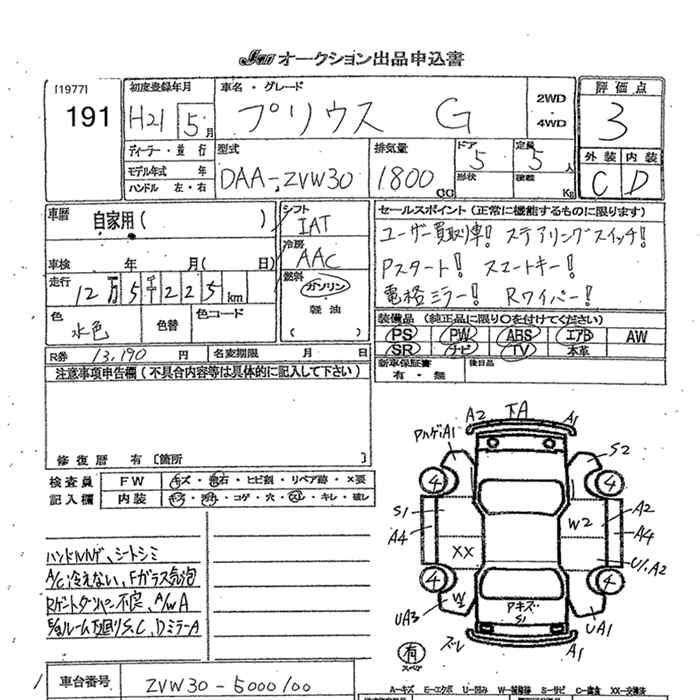 JU オークション出品申込書
[1977]
191
初度登録年月
H21 5月
車名・グレード
プリウス G
2WD
・
4WD
評価点
3
外装 内装
C D
ディーラー・並行
モデル年式 年
ハンドル 左・右
型式
DAA-ZVW30
排気量
1800 CC
ドア
5
形状
定員
5人
積載
Kg
車暦
自家用( )
車検 年 月( 日)
走行
12万5千225km
色
水色
色替
色コード
シフト
IAT
冷房
AAC
燃料
ガソリン
軽油
( )
セールスポイント(正常に機能するものに限ります)
ユーザー買取り車! ステアリングスイッチ!
Pスタート! スマートキー!
電格ミラー! Rワイパー!
装備品(純正品に限り○を付けてください)
PS PW ABS エアB AW
SR ナビ TV 本革
R券 13,190 円
名変期限 月 日
新車保証書
有・無
後日品
注意事項申告欄(不具合内容等は具体的に記入して下さい)
修復暦 有〔箇所
検査員
記入欄
FW キズ・飛石・ヒビ割・リペア跡・×要
内装 キズ・汚れ・コゲ・穴・スレ・キレ・破レ
ハンドルハゲ、シートシミ
A/C冷えない、Fガラス気泡
Rゲートダンパー不良、A/WA
下廻りS.C、DミラーA
車台番号
ZVW30-5000100
A2 下A A1
ハゲA1
S2
4 4
S1
A4
W2
A2
A4
XX
U1.A2
4 4
W
UA3
Pキズ
S1
UA1
ズレ
A1
有
スペア
A-キズ E-エクボ U-凹み W-補修跡 S-サビ C-腐食 XX-交換済